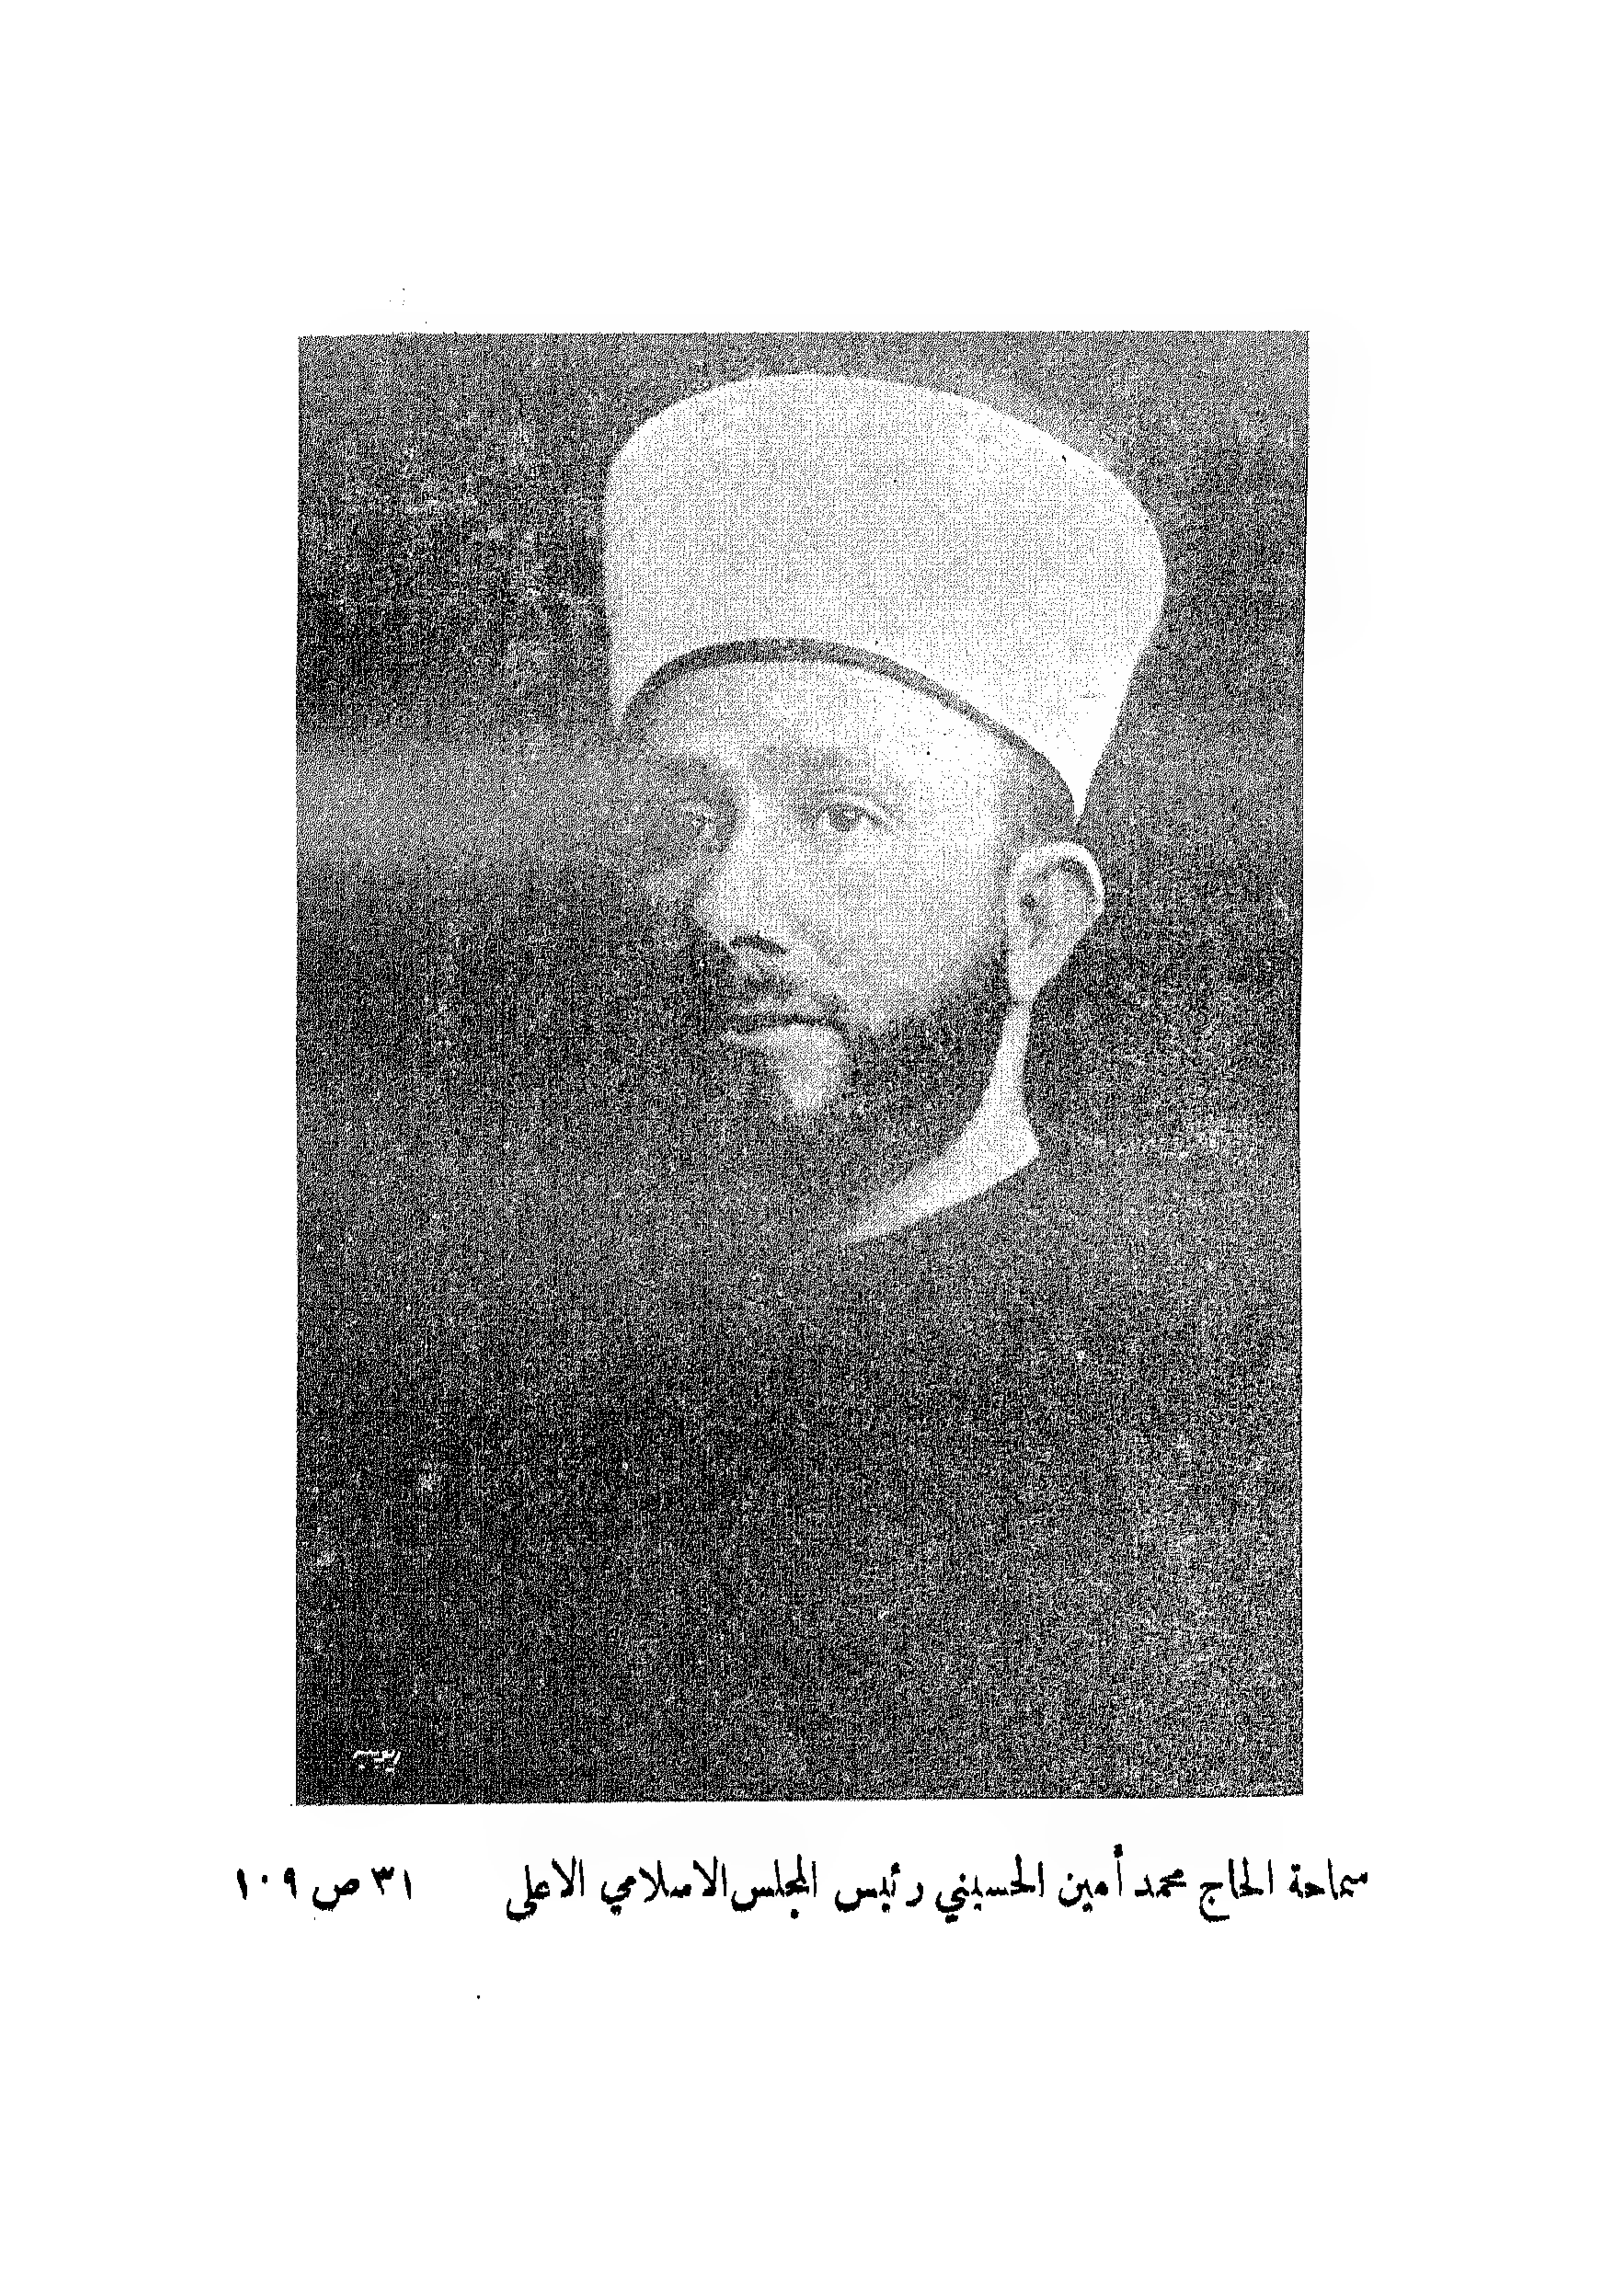 سماحة الحاج محمد أمين الحسيني رئيس المجلس الاسلامي الاعلى ٣١ ص ١٠٩